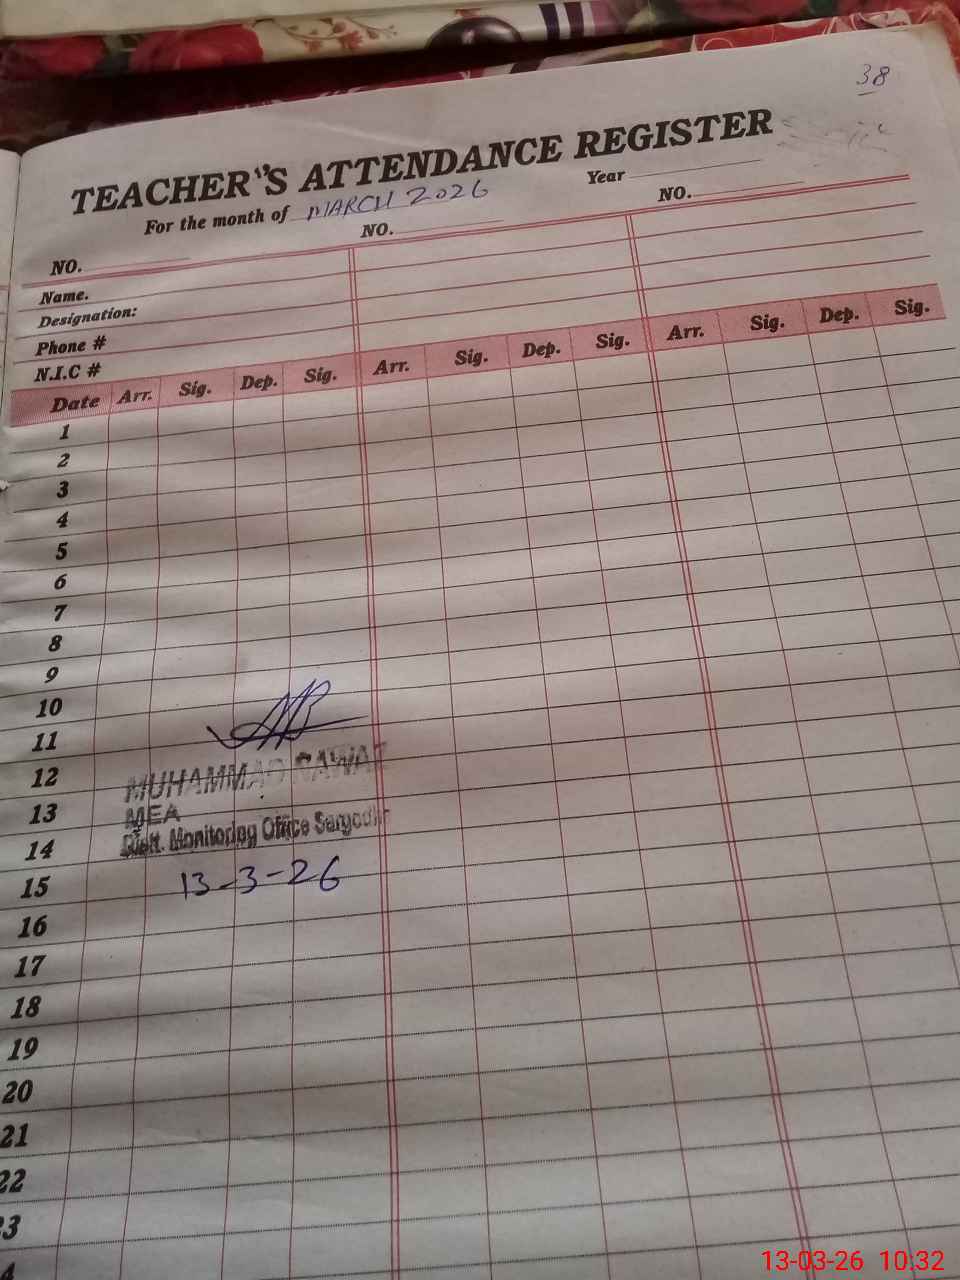 38
TEACHER'S ATTENDANCE REGISTER
For the month of MARCH 2026 Year
NO. NO. NO.
Name.
Designation:
Phone #
N.I.C #
Date Arr. Sig. Dep. Sig. Arr. Sig. Dep. Sig. Arr. Sig. Dep. Sig.
1
2
3
4
5
6
7
8
9
10
11
12
13
14
MUHAMMAD NAWAZ
MEA
Distt. Monitoring Office Sargodha
13-3-26
15
16
17
18
19
20
21
22
23
13-03-26 10:32